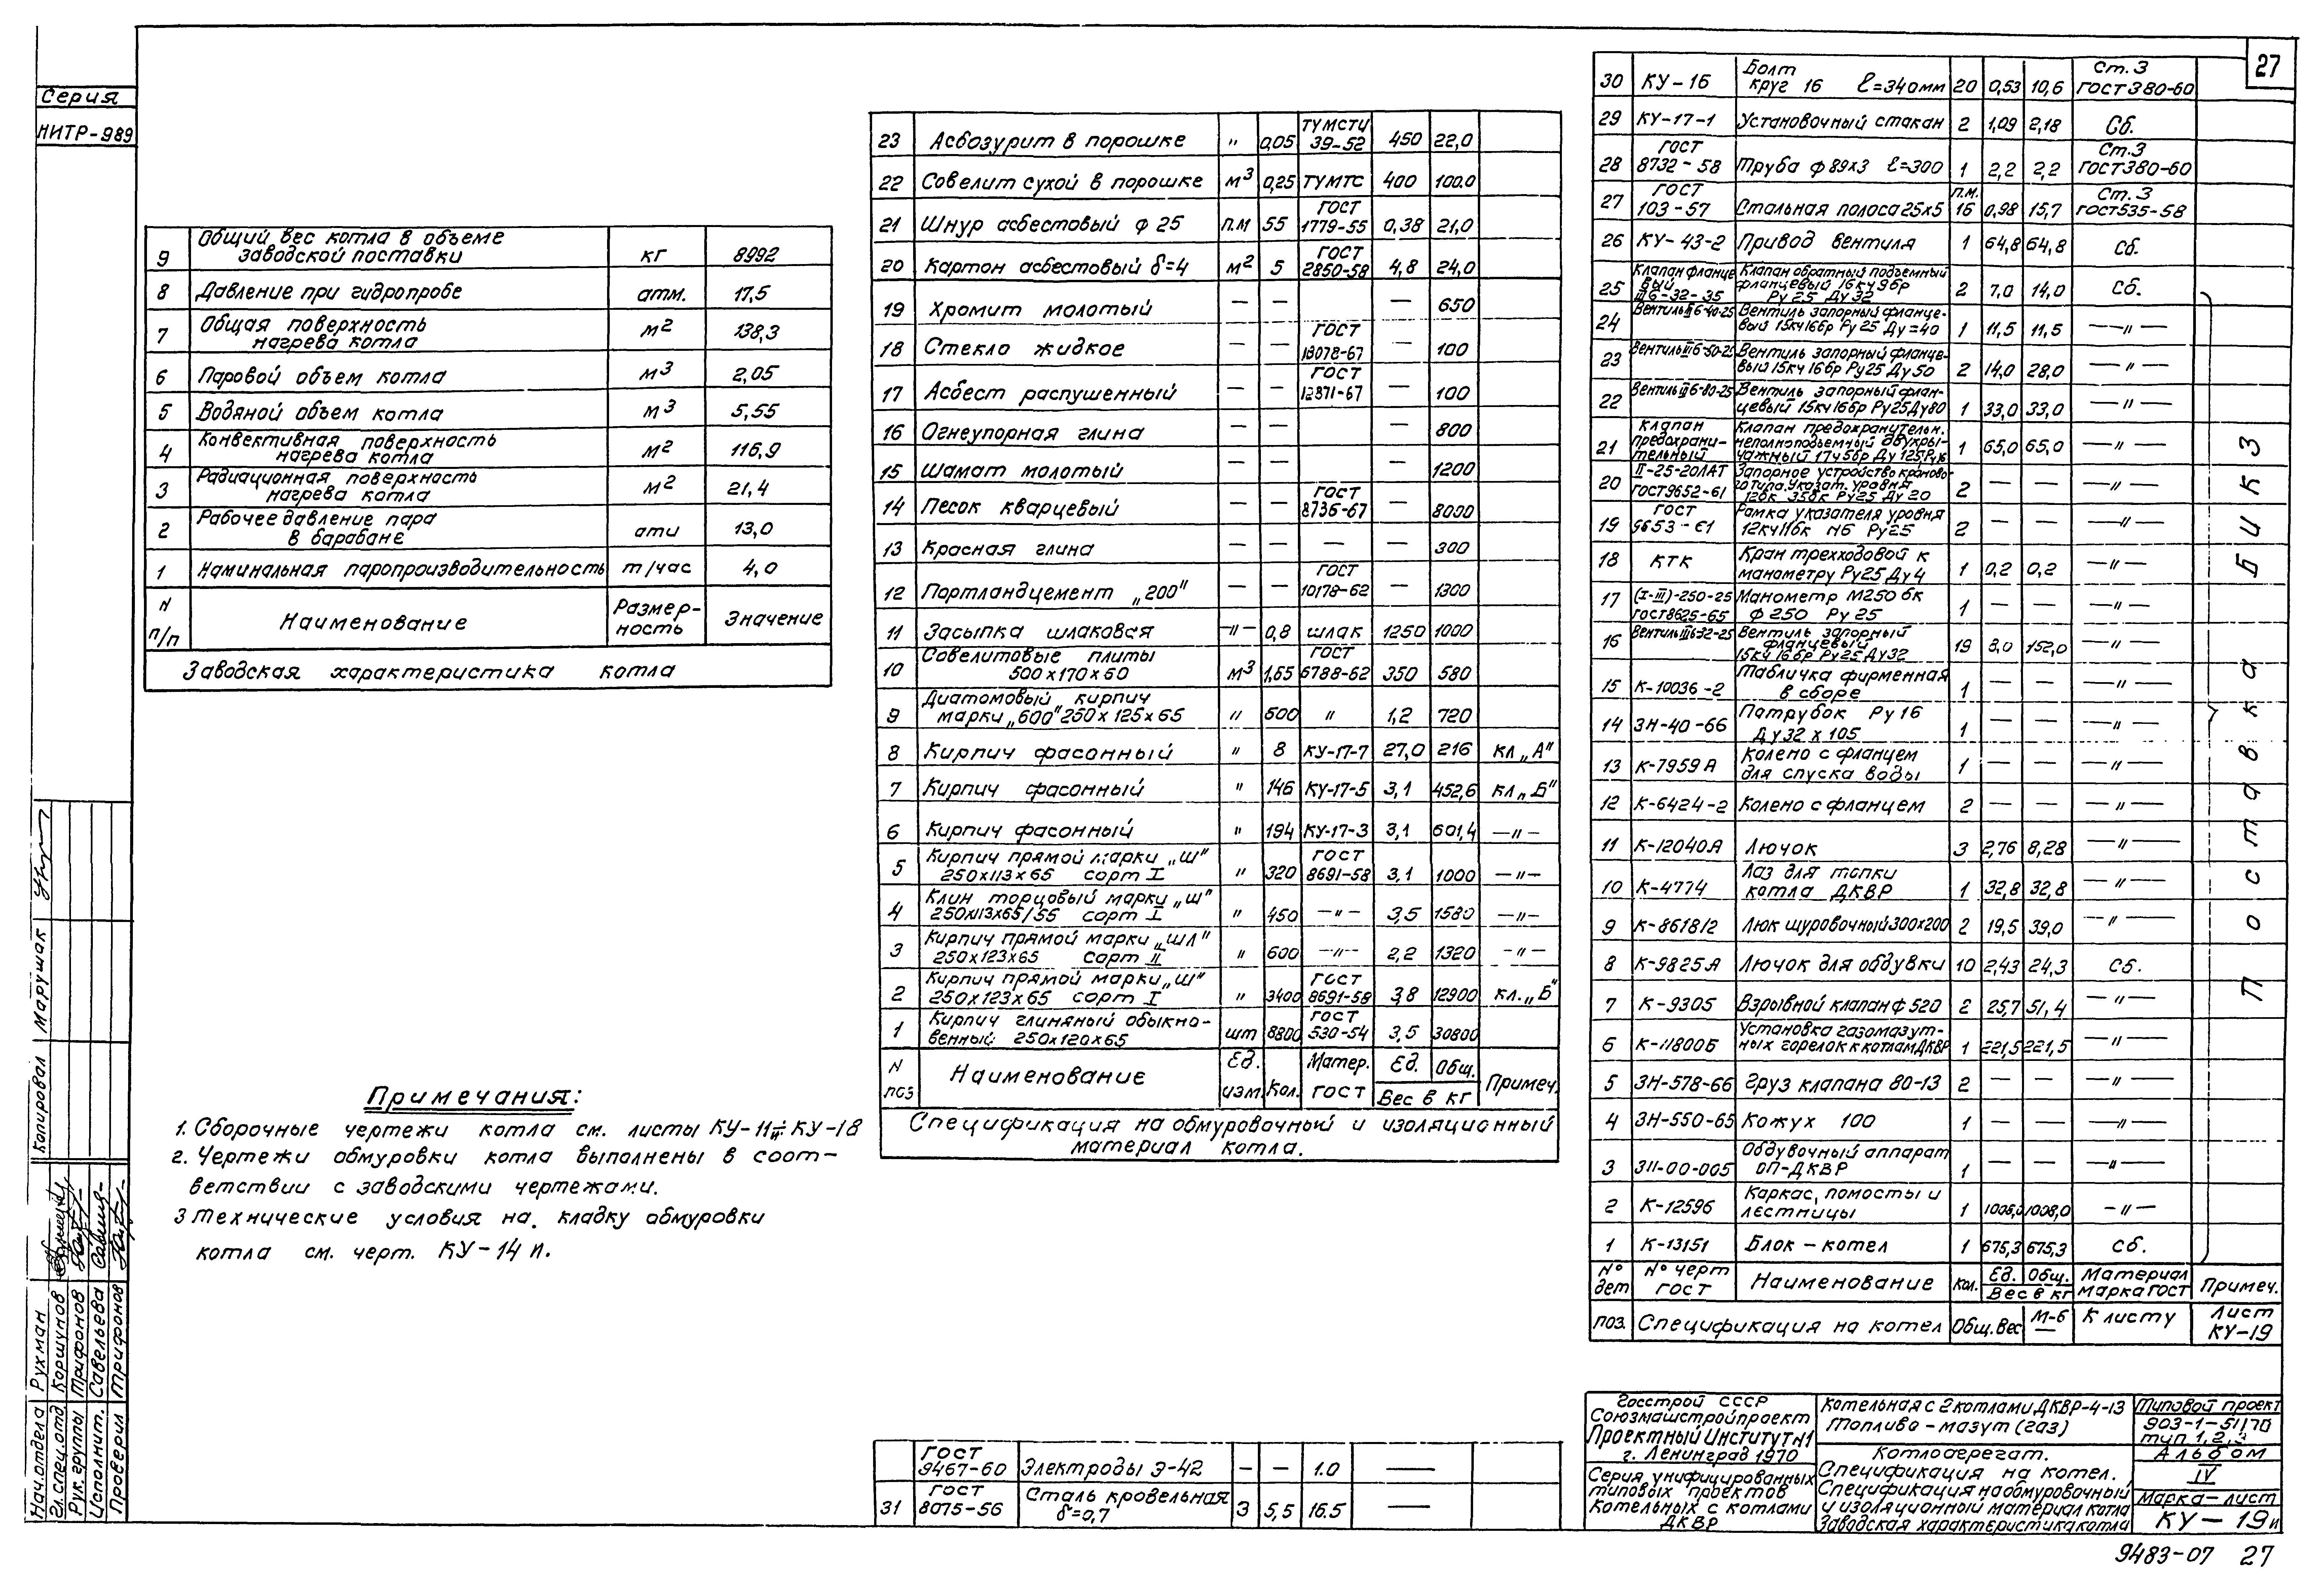 27
Серия
НИТР-989
9 Общий вес котла в объеме заводской поставки кг 8992
8 Давление при гидропробе атм. 17,5
7 Общая поверхность нагрева котла м2 138,3
6 Паровой объем котла м3 2,05
5 Водяной объем котла м3 5,55
4 Конвективная поверхность нагрева котла м2 116,9
3 Радиационная поверхность нагрева котла м2 21,4
2 Рабочее давление пара в барабане ати 13,0
1 Наминальная паропроизводительность т/час 4,0
N п/п Наименование Размерность Значение
Заводская характеристика котла
Примечания:
1. Сборочные чертежи котла см. листы КУ-11÷КУ-18
2. Чертежи обмуровки котла выполнены в соот-
ветствии с заводскими чертежами.
3 Технические условия на кладку обмуровки
котла см. черт. КУ-14 п.
23 Асбозурит в порошке " 0,05 ТУМСТЦ 39-52 450 22,0
22 Совелит сухой в порошке м3 0,25 ТУМТС 400 100.0
21 Шнур асбестовый ф 25 п.м 55 ГОСТ 1779-55 0,38 21,0
20 Картон асбестовый δ=4 м2 5 ГОСТ 2850-58 4,8 24,0
19 Хромит молотый — — — 650
18 Стекло жидкое — — ГОСТ 13078-67 — 100
17 Асбест распушенный — — ГОСТ 12871-67 — 100
16 Огнеупорная глина — — — 800
15 Шамат молотый — — — 1200
14 Песок кварцевый — — ГОСТ 8736-67 — 8000
13 Красная глина — — — — 300
12 Портландцемент „200" — — ГОСТ 10178-62 — 1300
11 Засыпка шлаковая —"— 0,8 шлак 1250 1000
10 Совелитовые плиты 500х170х60 м3 1,65 ГОСТ 6788-62 350 580
9 Диатомовый кирпич марки „600" 250х125х65 " 600 " 1,2 720
8 Кирпич фасонный " 8 КУ-17-7 27,0 216 кл „А"
7 Кирпич фасонный " 146 КУ-17-5 3,1 452,6 кл „Б"
6 Кирпич фасонный " 194 КУ-17-3 3,1 601,4 —"—
5 Кирпич прямой марки „Ш" 250х113х65 сорт I " 320 ГОСТ 8691-58 3,1 1000 —"—
4 Клин торцовый марки „Ш" 250х113х65/55 сорт I " 450 —"— 3,5 1580 —"—
3 Кирпич прямой марки „ШЛ" 250х123х65 сорт II " 600 —"— 2,2 1320 —"—
2 Кирпич прямой марки „Ш" 250х123х65 сорт I " 3400 ГОСТ 8691-58 3,8 12900 кл. „Б"
1 Кирпич глиняный обыкновенный 250х120х65 шт 8800 ГОСТ 530-54 3,5 30800
N поз Наименование Ед. изм. Кол. Матер. ГОСТ Ед. Общ. Вес в кг Примеч.
Спецификация на обмуровочный и изоляционный
материал котла.
ГОСТ 9467-60 Электроды Э-42 — — 1.0 —
31 ГОСТ 8075-56 Сталь кровельная δ=0,7 3 5,5 16.5 —
30 КУ-16 Болт круг 16 ℓ=340мм 20 0,53 10,6 Ст. 3 ГОСТ 380-60
29 КУ-17-1 Установочный стакан 2 1,09 2,18 Сб.
28 ГОСТ 8732-58 Труба ф 89х3 ℓ=300 1 2,2 2,2 Ст.3 ГОСТ380-60
27 ГОСТ 103-57 Стальная полоса 25х5 п.м. 16 0,98 15,7 Ст. 3 ГОСТ535-58
26 КУ-43-2 Привод вентиля 1 64,8 64,8 Сб.
25 Клапан фланцевый III6-32-35 Клапан обратный подъемный фланцевый 16кч9бр Ру 25 Ду 32 2 7,0 14,0 Сб.
24 Вентиль III6-40-25 Вентиль запорный фланцевый 15кч16бр Ру 25 Ду=40 1 11,5 11,5 —"—
23 Вентиль III6-50-25 Вентиль запорный фланцевый 15кч16бр Ру25 Ду50 2 14,0 28,0 —"—
22 Вентиль III6-80-25 Вентиль запорный фланцевый 15кч16бр Ру25 Ду80 1 33,0 33,0 —"—
21 Клапан предохранительный Клапан предохранительн. неполноподъемный двухрычажный 17ч5бр Ду 125 1 65,0 65,0 —"—
20 II-25-20ЛАТ ГОСТ9652-61 Запорное устройство кранового типа. Указат. уровня 12бк 35бк Ру25 Ду 20 2 — — —"—
19 ГОСТ 9653-61 Рамка указателя уровня 12кч11бк N6 Ру25 2 — — —"—
18 КТК Кран трехходовой к манометру Ру25 Ду4 1 0,2 0,2 —"—
17 (I-III)-250-25 ГОСТ8625-65 Манометр М250 бк ф 250 Ру 25 1 — — —"—
16 Вентиль III6-32-25 Вентиль запорный фланцевый 15кч 16бр Ру25 Ду32 19 8,0 152,0 —"—
15 К-10036-2 Табличка фирменная в сборе 1 — — —"—
14 ЗН-40-66 Патрубок Ру 16 Ду 32 х 105 1 — — —"—
13 К-7959А Колено с фланцем для спуска воды 1 — — —"—
12 К-6424-2 Колено с фланцем 2 — — —"—
11 К-12040А Лючок 3 2,76 8,28 —"—
10 К-4774 Лаз для топки котла ДКВР 1 32,8 32,8 —"—
9 К-8618/2 Люк шуровочный 300х200 2 19,5 39,0 —"—
8 К-9825А Лючок для обдувки 10 2,43 24,3 Сб.
7 К-9305 Взрывной клапан ф 520 2 25,7 51,4 —"—
6 К-11800Б Установка газомазутных горелок к котлам ДКВР 1 221,5 221,5 —"—
5 ЗН-578-66 Груз клапана 80-13 2 — — —"—
4 ЗН-550-65 Кожух 100 1 — — —"—
3 ЗП-00-005 Обдувочный аппарат ОП-ДКВР 1 — — —"—
2 К-12596 Каркас, помосты и лестницы 1 1008,0 1008,0 —"—
1 К-13151 Блок-котел 1 675,3 675,3 сб.
N° дет N° черт ГОСТ Наименование Кол. Ед. Общ. Вес в кг Материал марка ГОСТ Примеч.
поз. Спецификация на котел Общ. Вес М-б — К листу Лист КУ-19
Поставка БиКЗ
Госстрой СССР
Союзмашстройпроект
Проектный Институт N1
г. Ленинград 1970
Серия унифицированных
типовых проектов
котельных с котлами
ДКВР
Котельная с 2 котлами ДКВР-4-13
Топливо - мазут (газ)
Котлоагрегат.
Спецификация на котел.
Спецификация на обмуровочный
и изоляционный материал котла
Заводская характеристика котла
Типовой проект
903-1-51/70
тип 1,2,
Альбом
IV
марка-лист
КУ-19и
9483-07 27
Копировал Марушак
Нач.отдела Рухман
Гл.спец.отд. Коршунов
Рук.группы Трифонов
Исполнит. Савельева
Проверил Трифонов